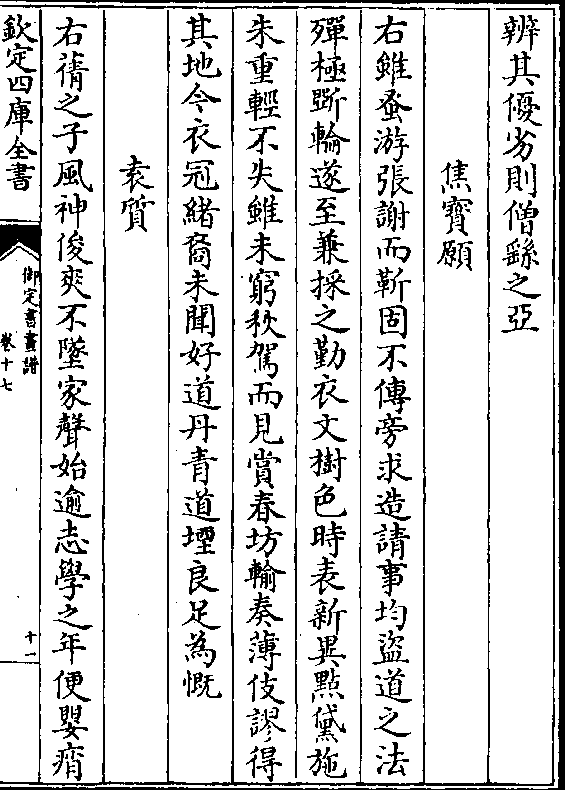 辨其優劣則僧繇之亞
焦寶願
右雖蚤游張謝而靳固不傳旁求造請事均盜道之法
殫極斲輪遂至兼採之勤衣文樹色時表新異點黛施
朱重輕不失雖未窮秋駕而見賞春坊輸奏薄伎謬得
其地今衣冠緒裔未聞好道丹青道堙良足為慨
袁質
右蒨之子風神俊爽不墜家聲始逾志學之年便嬰痟
欽定四庫全書
御定書畫譜
卷十七
十一